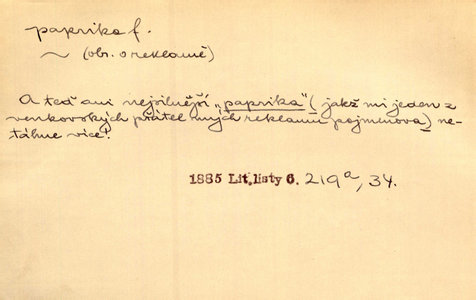 paprika f.
~ (obr. o reklamě)
A teď ani nejsilnější „paprika“ (jakž mi jeden z
venkovských přátel mých reklamu pojmenova) ne-
táhne více.
1885 Lit. listy 6. 219a, 34.